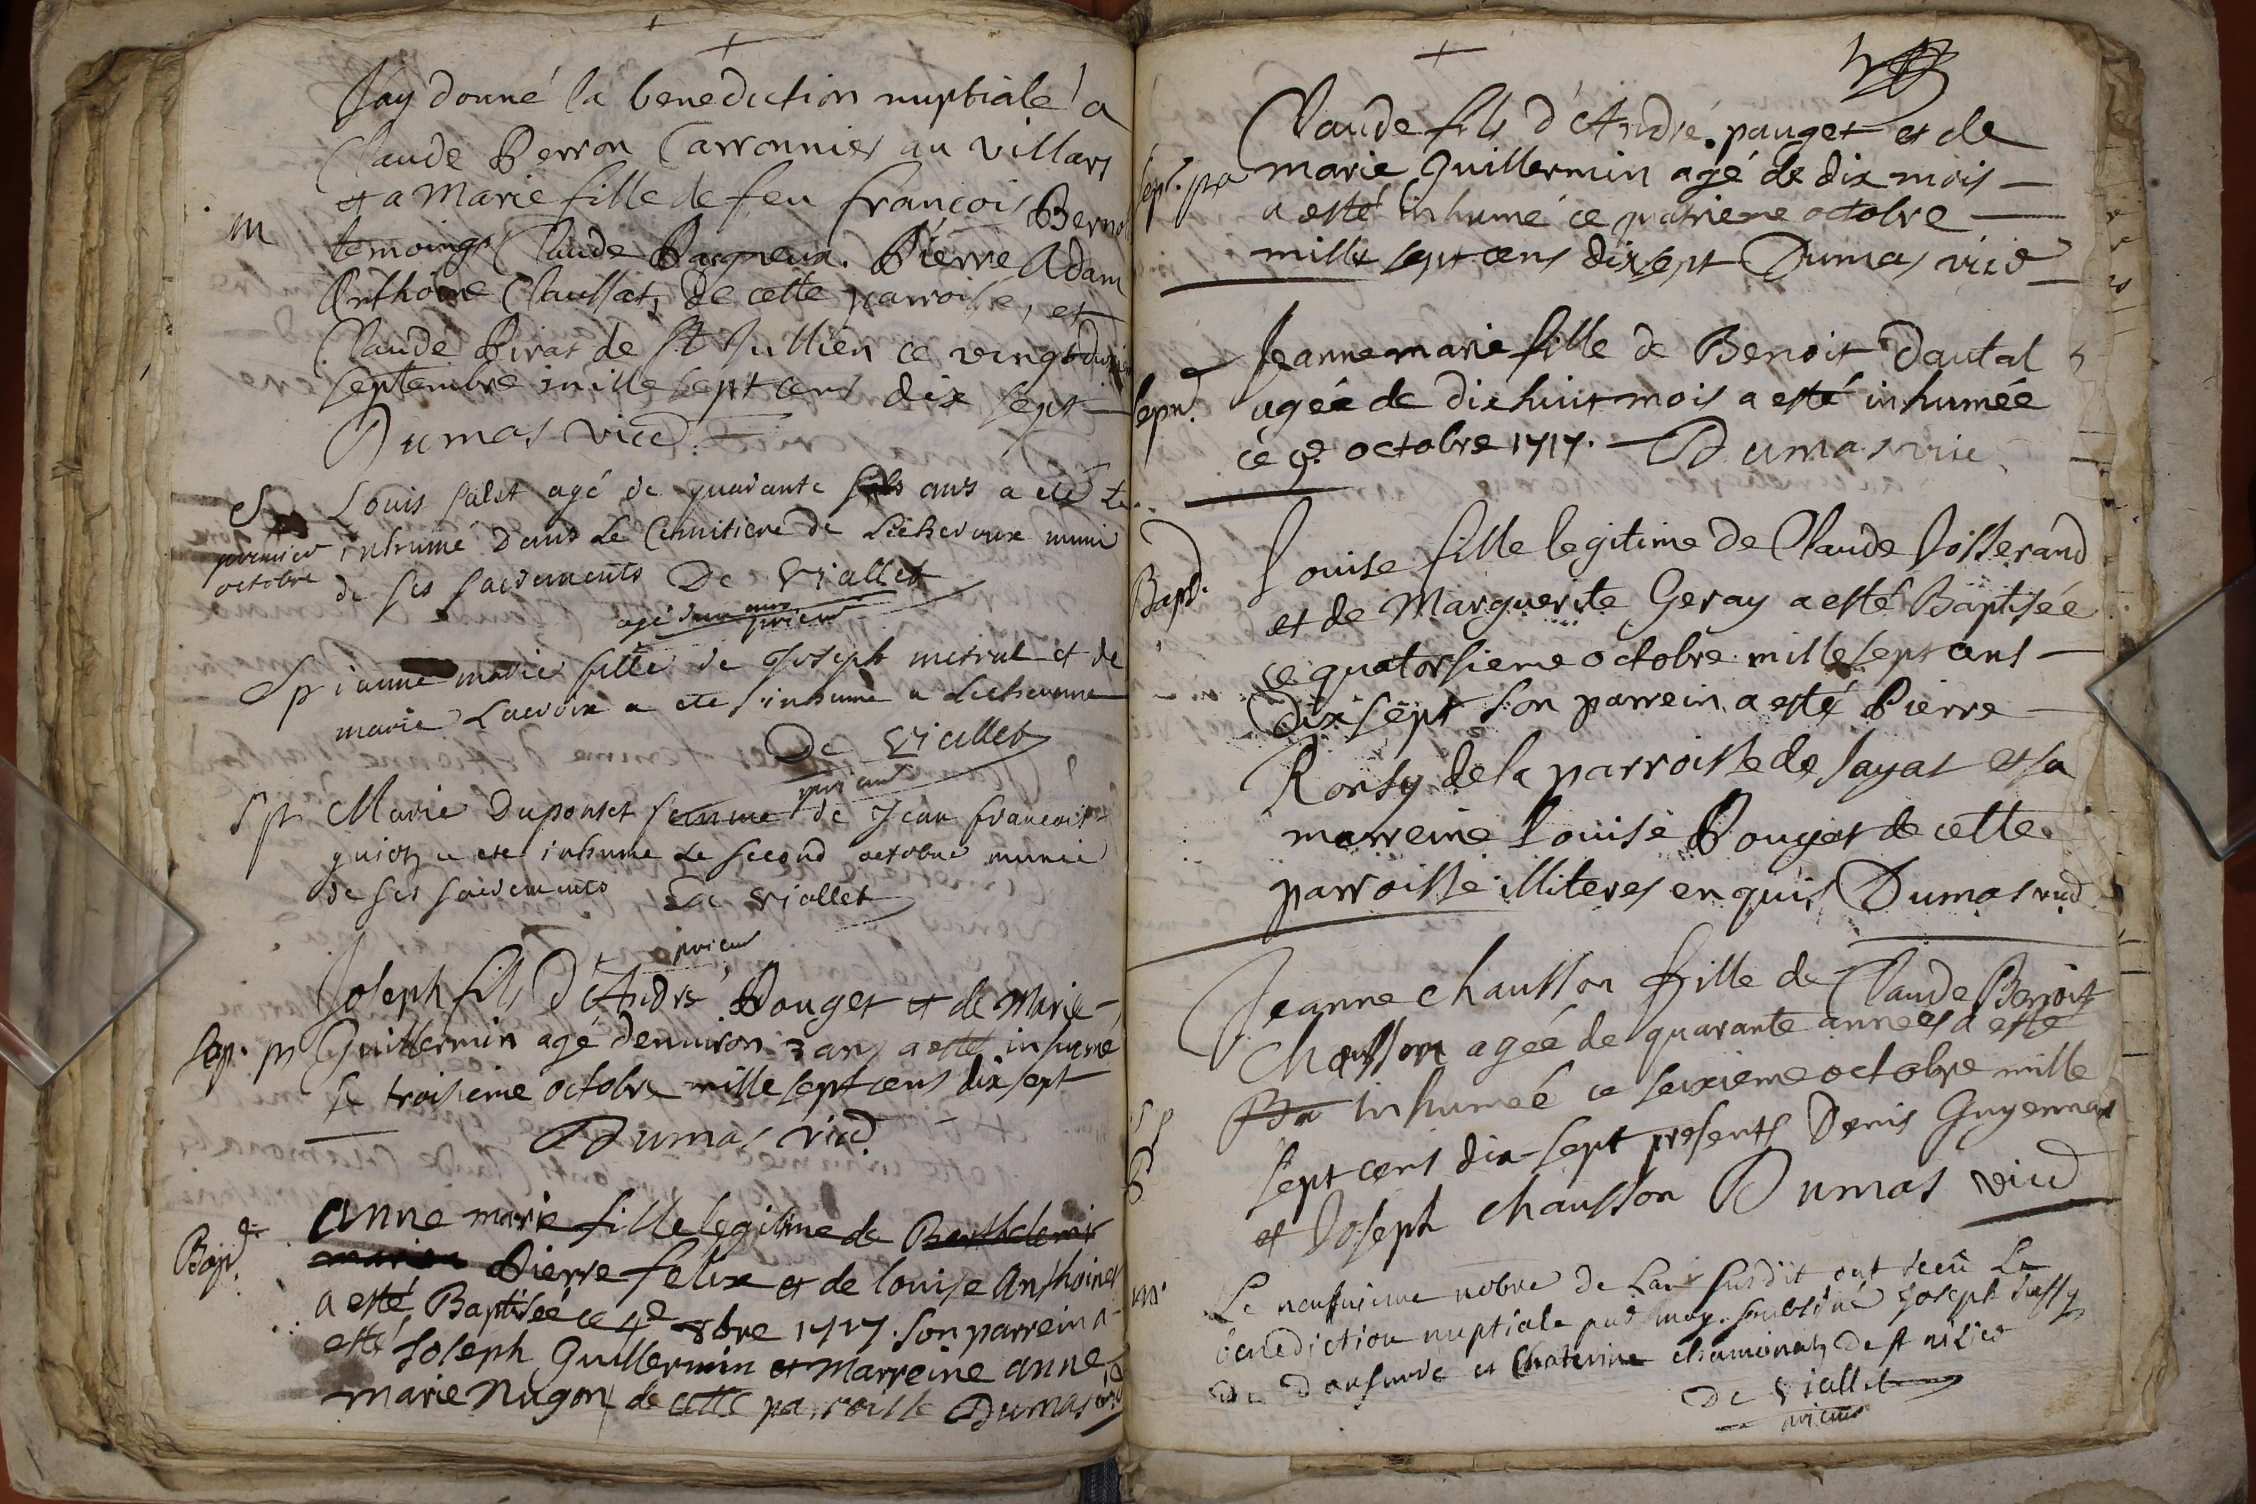 Jay donné la benediction nuptiale a
Claude Perron Carronnier au villars
et a Marie fille de feu françois
m
temoings Claude Pierre Adam
Anthoine Claussat, de cette parroisse, et
Claude Piras de St Jullien ce
septembre mille sept cens dix sept
Dumas vicd
Sp Louis agé de quarante ans a eté
premier inhumé Dans Le Cimitiere de Lécheroux muni
octobre de ses sacrements De Viallet
prieur
Sp ianne marie fille de joseph metral et de
marie Lacroix a ete inhumé a
De Viallet
prieur
Sp Marie Duponset femme de Jean francois
guion a ete inhumé Le second octobre munie
de ses sacrements De Viallet
prieur
Joseph fils d'André Pouget et de Marie
Sep. pr Guillermin agé denuiron 3 ans a esté inhumé
le troisieme octobre mille sept cens dix sept
Dumas vicd.
Anne marie fille legitime de Barthelemie
Bapd. Pierre felix et de louise Anthoinet
a esté Baptisée ce 4e 8bre 1717. son parrein a
esté Joseph Guillermin et Marreine anne
marie Nugon de cette parroisse Dumas vicd
Claude fils d'André pauget et de
Sept. pr marie Guillermin agé de dix mois
a esté inhumé ce octobre
mille sept cens dixsept Dumas vicd
Jeanne marie fille de Benoit Dautal
Sepu. agée de dixhuit mois a esté inhumée
ce 9e octobre 1717. Dumas vic
Louise fille legitime de Claude Josserand
Bapd. et de Marguerite Geray a esté Baptisée
ce quatorsieme octobre mille sept cens
dix sept son parrein a esté Pierre
Ronsy de la parroisse de Jayat et sa
marreine Louise Pouget de cette
parroisse illiteres enquis Dumas vicd
Jeanne chausson fille de Claude Benoit
chausson agée de quarante années a esté
Sp inhumée ce seixieme octobre mille
sept cens dix-sept presents Denis Guyennar
et Joseph chausson Dumas vicd
m. Le neufvieme nobre de Lan susdit ont receu La
benediction nuptiale par moy soubsiné Joseph
De et Chaterine chamonat, De st
De Viallet
prieur